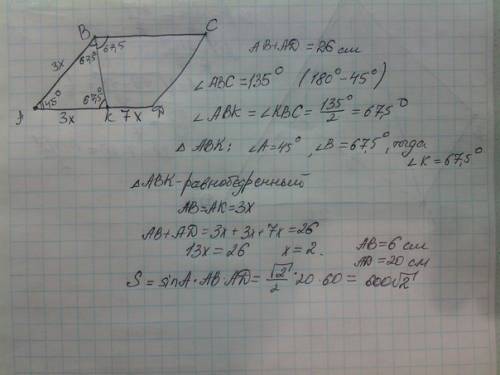 B
C
67,5
67,5°
3x
45°
67,5°
A
3x
K
7x
D
AB+AD = 26 см
∠ABC = 135° (180° - 45°)
∠ABK = ∠KBC = 135°/2 = 67,5°
△ ABK: ∠A = 45°, ∠B = 67,5°, тогда
∠K = 67,5°
△ABK - равнобедренный
AB = AK = 3x
AB + AD = 3x + 3x + 7x = 26
13x = 26 x = 2.
AB = 6 см
AD = 20 см
S = sinA · AB · AD = √2/2 · 20 · 60 = 600√2